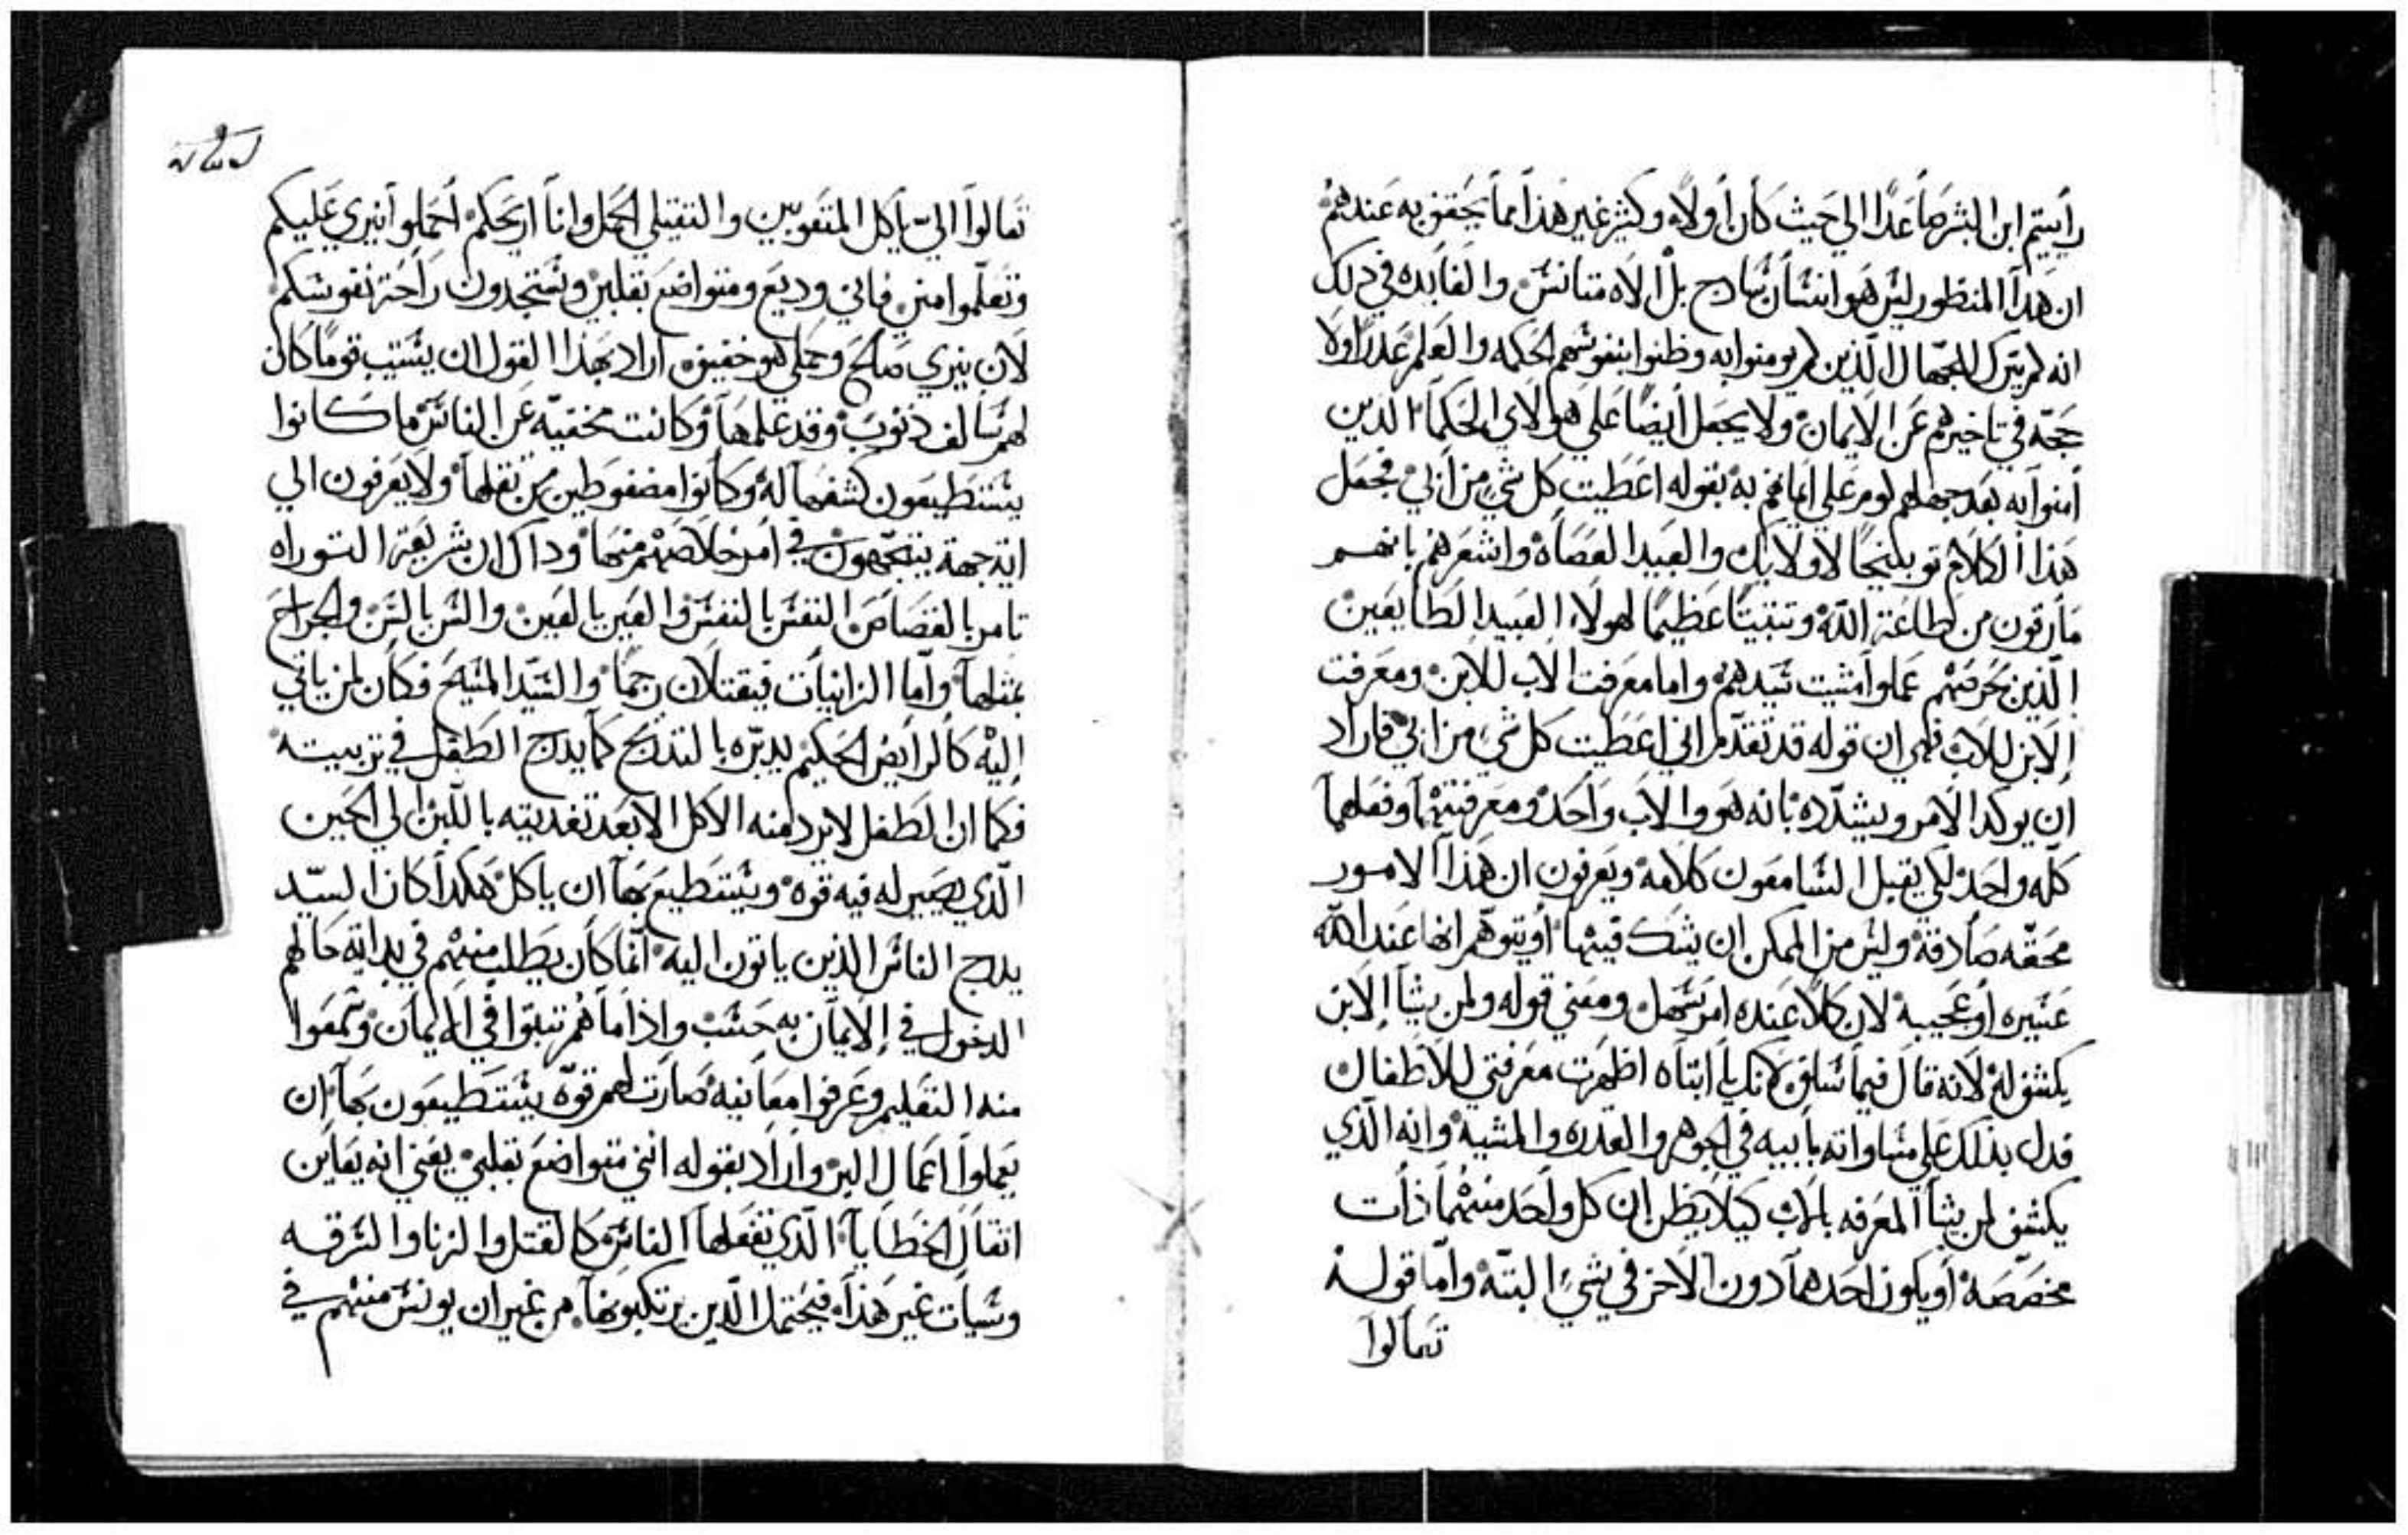 رأيتم ابن البشر صاعدًا الي حيث كان أولاً وكثير غير هذا مما يحقق به عندهم
ان هذا المنظور ليس هو انسان ساذج بل الاه متانس والفايده في ذلك
انه لم يترك للجهال الذين لم يومنوا به وظنوا بنفوسهم الحكمه والعلم عذرًا ولا
حجة في تاخيرهم عن الايمان ولا يجعل أيضًا علي هولاي الحكما الذين
أمنوا به بعد جهلهم لوم علي ايمانهم به بقوله اعطيت كل شي من أبي فجعل
هذا الكلام توبيخًا لاولايك والعبيد العصاه واشعرهم بانهم
مارقون من طاعة الله وتثبيتًا عظيمًا لهولاء العبيد الطايعين
الذين بحرصهم عملوا مشيت سيدهم واما معرفت الاب للابن ومعرفت
الابن للاب فهي ان قوله قد تقدم اني اعطيت كل شي من ابي فاراد
ان يوكد الامر ويشدده بانه هو والاب واحد ومعرفتهما وفعلهما
كله واحد لكي يقبل السامعون كلامه ويعرفون ان هذا الامور
محقه صادقة وليس من الممكن ان يشك فيها أو يتوهم انها عند الله
عسيره أو عجيبة لان كلًا عنده امر سهل ومعني قوله ولمن يشا الابن
يكشف له لانه قال فيما ساق انك يا ابتاه اظهرت معرفتي للاطفال
فدل بذلك علي مساواته بأبيه في الجوهر والقدره والمشية وانه الذي
يكشف لمن يشا المعرفه بالاب كيلا يظن ان كل واحد منهما ذات
مخصصة أو يكون احدهما دون الاخر في شيء البتة واما قوله
تعالوا
تعالوا الي يا كل المتعوبين والثقيلي الحمل وانا اريحكم احملوا نيري عليكم
وتعلموا مني فاني وديع ومتواضع بقلبي وستجدون راحة نفوسكم
لان نيري صالح وحملي هو خفيف اراد بهذا القول ان يستتيب قومًا كان
لهم سالف ذنوب وقد علمها وكانت مخفيه عن الناس ما كانوا
يستطيعون كشفها له وكانوا مضغوطين من ثقلها ولا يعرفون الي
اية جهة يتجهون في امر خلاصهم منها وذاك ان شريعة التوراه
تامر بالقصاص النفس بالنفس والعين بالعين والسن بالسن والجراح
بمثلها وأما الزانيات فيقتلان رجمًا والسيد المسيح فكان لمن ياتي
إليه كالرايض الحكيم يدبره بالتدريج كما يدرج الطفل في تربيته
فكما ان الطفل لا يرد منه الاكل الا بعد تغديته باللبن الي الحين
الذي يصير له فيه قوه ويستطيع بها ان ياكل هكدا كان السيد
يدرج الناس الذين ياتون اليه انما كان يطلب منهم في بداية حالهم
الدخول في الايمان به حسب واذا ما هم تبتوا في الايمان وسمعوا
منه التعليم وعرفوا معانيه صارت لهم قوة يستطيعون بها ان
يعملوا اعمال البر واراد بقوله انني متواضع بقلبي يعني انه يعاين
اثقال الخطايا الذي تفعلها الناس كالقتل والزنا والسرقه
وسيات غير هذا فيحتمل الذين يرتكبونها من غير ان يونس منهم في